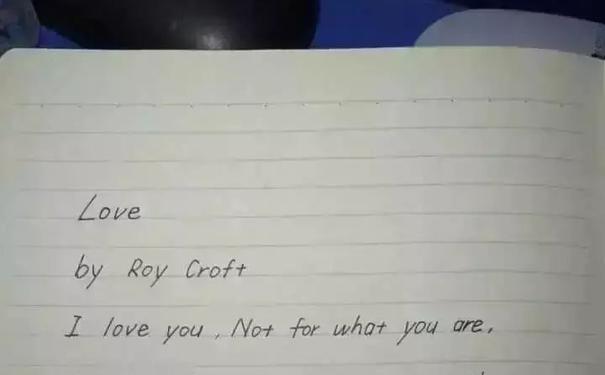 Love
by Roy Croft
I love you, Not for what you are,